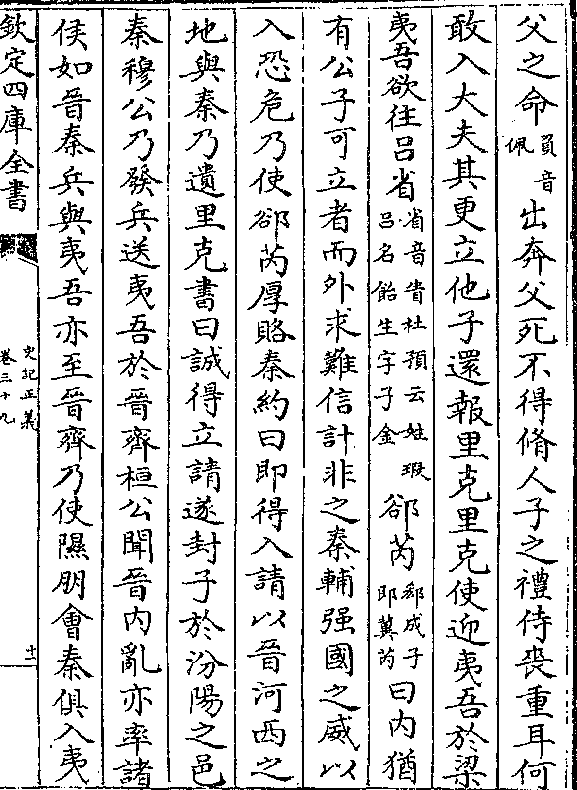 父之命負音佩出奔父死不得脩人子之禮侍喪重耳何
敢入大夫其更立他子還報里克里克使迎夷吾於梁
夷吾欲往吕省省音眚杜預云姓瑕吕名飴生字子金郤芮郤成子即冀芮曰内猶
有公子可立者而外求難信計非之秦輔强國之威以
入恐危乃使郤芮厚賂秦約曰即得入請以晉河西之
地與秦乃遺里克書曰誠得立請遂封子於汾陽之邑
秦穆公乃發兵送夷吾於晉齊桓公聞晉内亂亦率諸
侯如晉秦兵與夷吾亦至晉齊乃使隰朋會秦俱入夷
欽定四庫全書
史記正義
卷三十九
十二